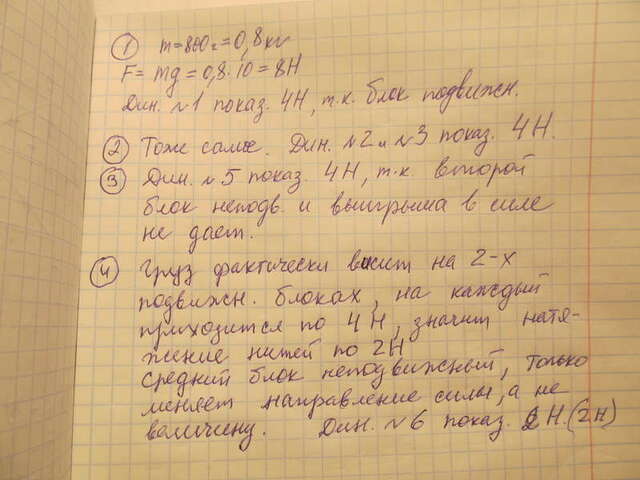 ① m=800г=0,8кг
F= mg=0,8·10=8Н
Дин. №1 показ. 4Н, т.к. блок подвижн.
② Тоже самое. Дин. №2 и №3 показ. 4Н.
③ Дин. №5 показ. 4Н, т.к второй
блок неподв. и выигрыша в силе
не дает.
④ Груз фактически висит на 2-х
подвижн. блоках, на каждый
приходится по 4Н, значит натя-
жение нитей по 2Н
Средний блок неподвижный, только
меняет направление силы, а не
величину. Дин. №6 показ. 2Н.(2Н)